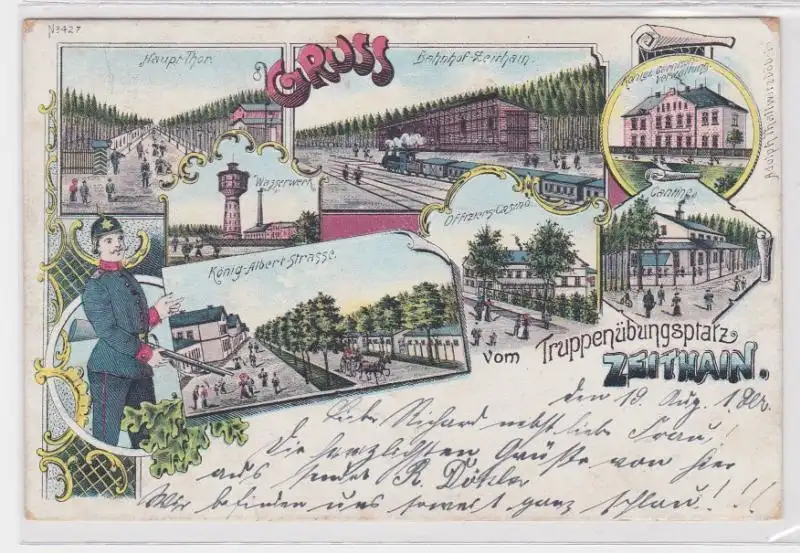 No 427
Haupt-Thor.
GRUSS
Bahnhof-Zeithain.
Verwaltung.
Wasserwerk
Offiziers-Casino
Cantine
König-Albert-Strasse.
vom Truppenübungsplatz
ZEITHAIN.
den 19. Aug. 1
Liebe Richard nebst liebe Frau!
Die herzlichsten Grüße von hier
aus sendet R.
Wir befinden uns soweit ganz schlau!!!